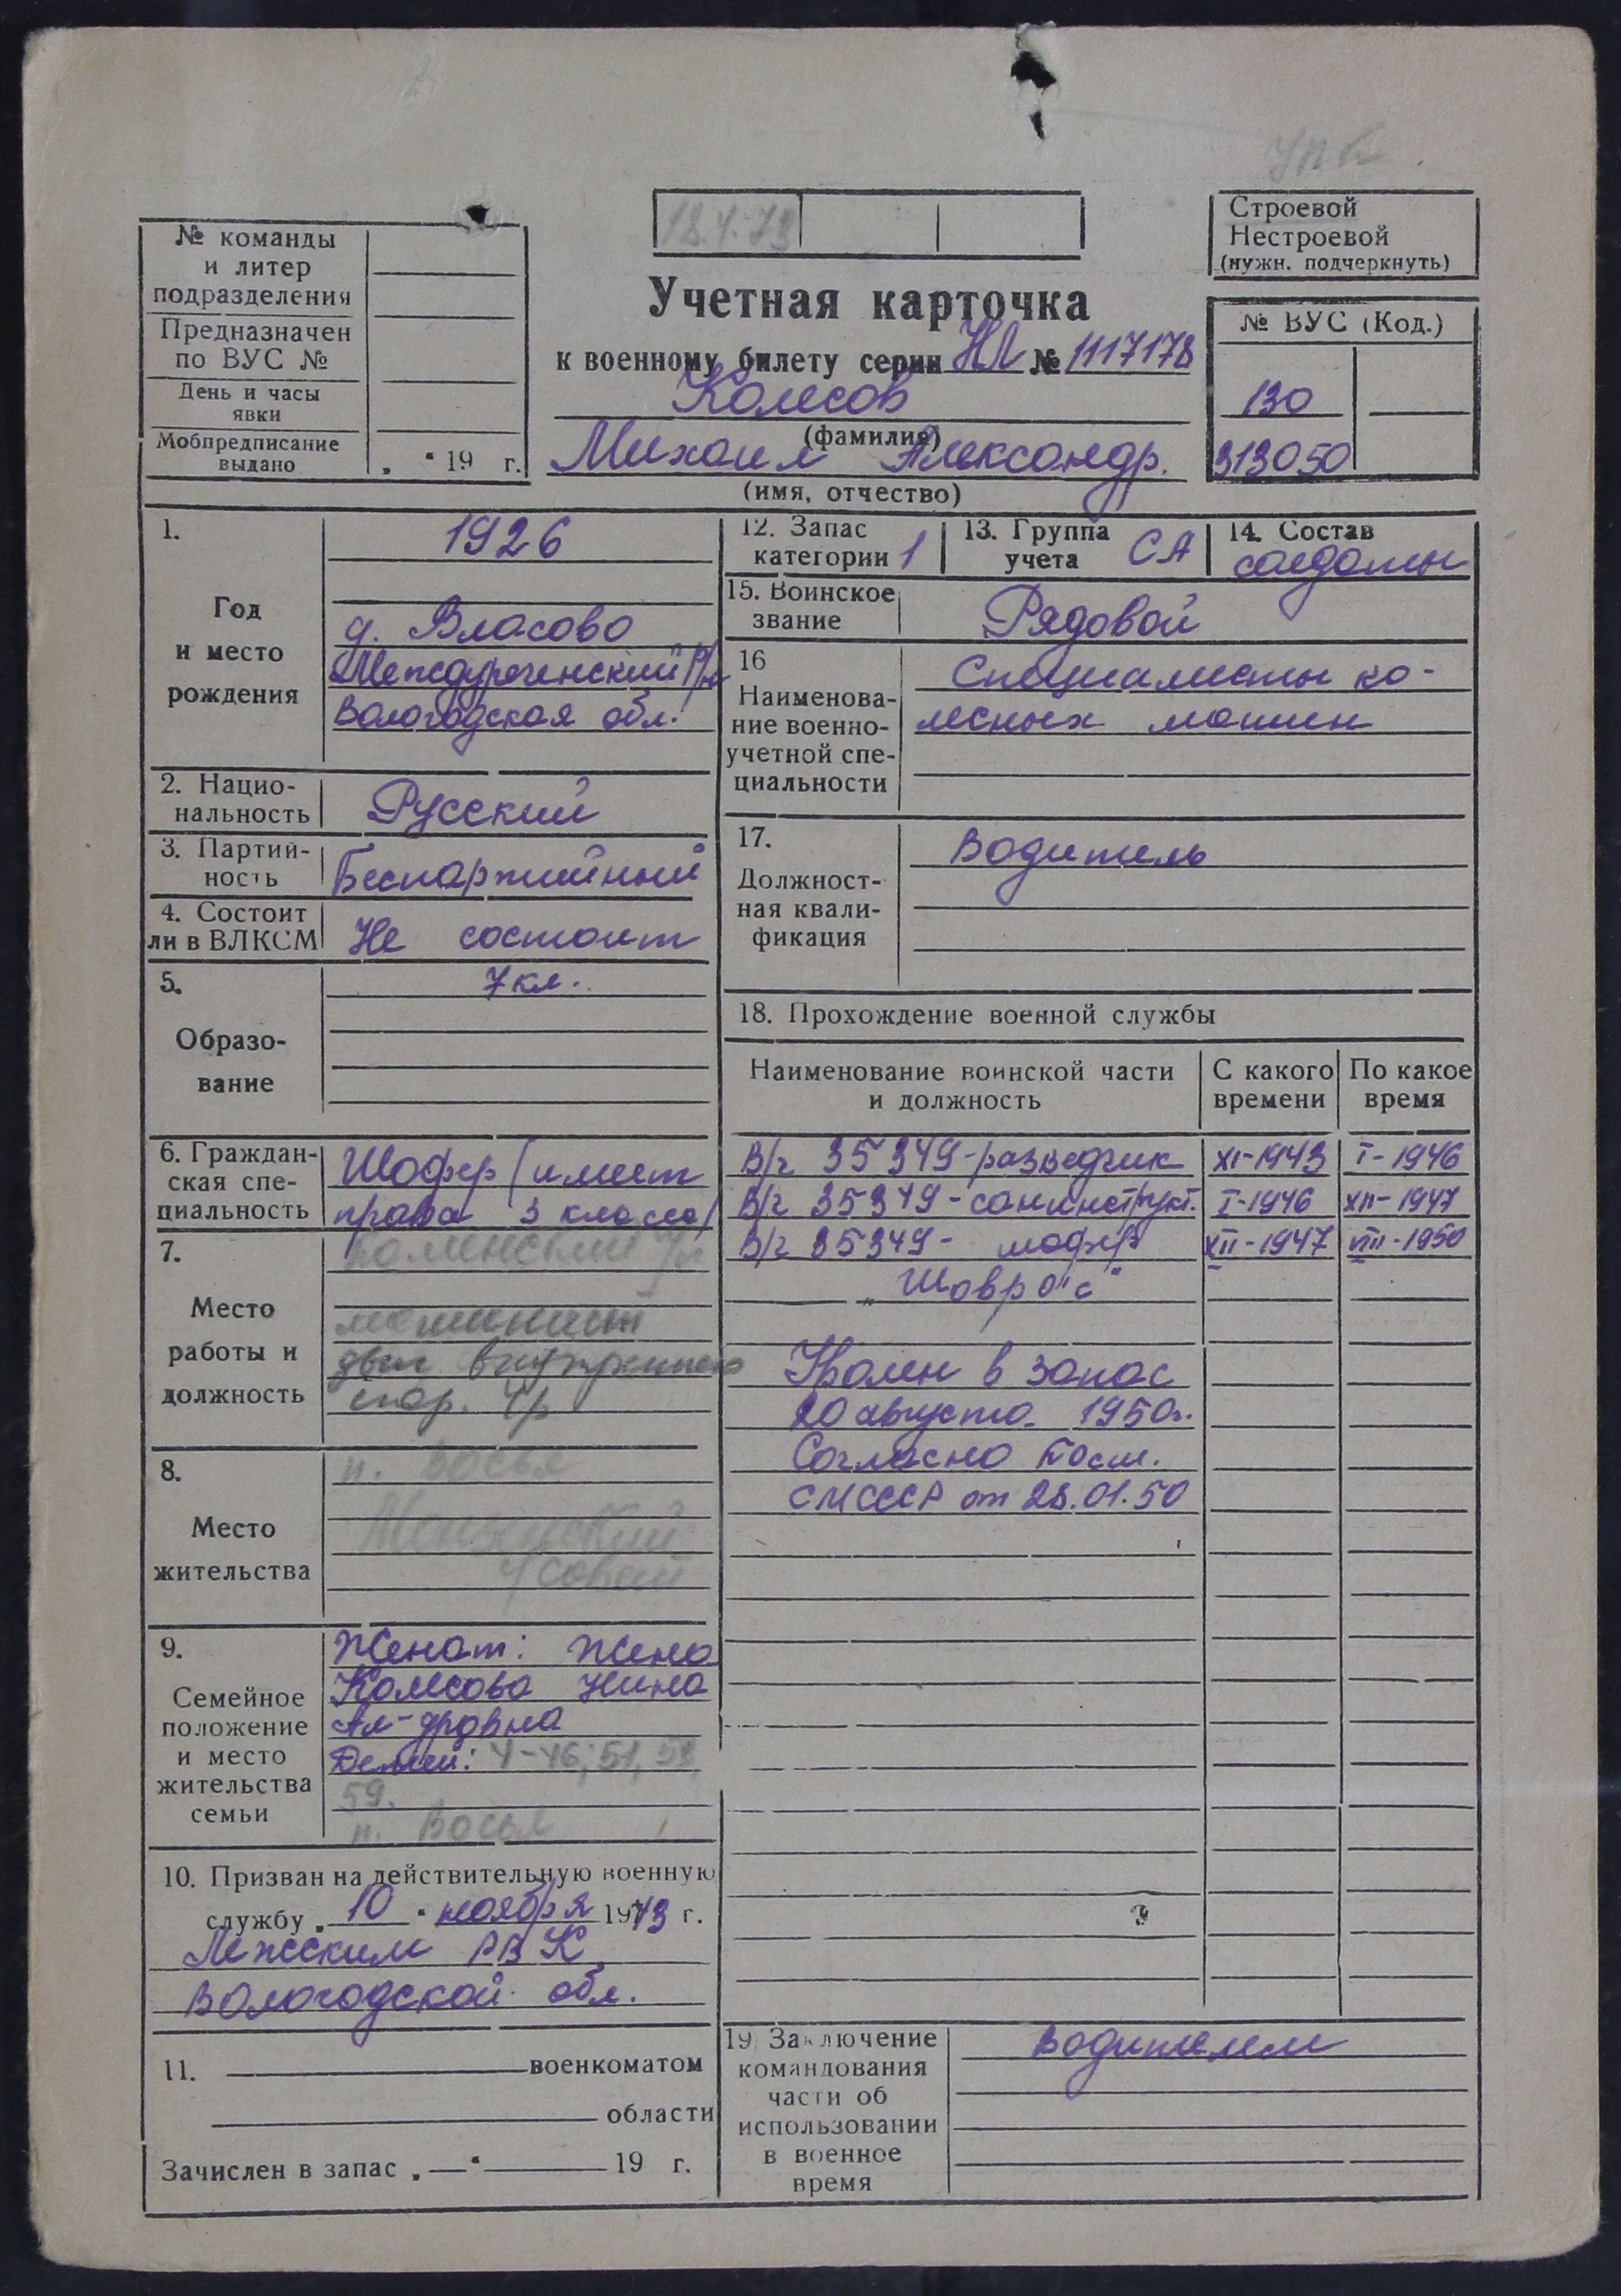 упк
18.4.73
Строевой
Нестроевой
(нужн. подчеркнуть)
№ команды
и литер
подразделения
Предназначен
по ВУС №
День и часы
явки
Мобпредписание
выдано
„ “ 19 г.
Учетная карточка
к военному билету серии НЛ № 1117178
Колесов
(фамилия)
Михаил Александр.
(имя, отчество)
№ ВУС (Код.)
130
313050
1.
Год
и место
рождения
1926
д. Власово
Междуреченский р/н
Вологодская обл.
2. Нацио-
нальность
Русский
3. Партий-
ность
Беспартийный
4. Состоит
ли в ВЛКСМ
Не состоит
5.
Образо-
вание
7 кл.
6. Граждан-
ская спе-
циальность
Шофер /имеет
права 3 класса/
7.
Место
работы и
должность
машинист
двиг внутреннего
сгор.
8.
Место
жительства
п. Восья
9.
Семейное
положение
и место
жительства
семьи
Женат: жена
Колесова Нина
Ал-дровна
Детей: 4-46; 51, 53,
59.
п. Восья
10. Призван на действительную военную
службу „ 10 “ ноября 1943 г.
Лежским РВК
Вологодской обл.
11. военкоматом
области
Зачислен в запас „ — “ 19 г.
12. Запас
категории 1
13. Группа
учета СА
14. Состав
солдаты
15. Воинское
звание
Рядовой
16
Наименова-
ние военно-
учетной спе-
циальности
Специалисты ко-
лесных машин
17.
Должност-
ная квали-
фикация
Водитель
18. Прохождение военной службы
Наименование воинской части
и должность
С какого
времени
По какое
время
В/ч 35349-разведчик XI-1943 I-1946
В/ч 35349-санинструкт. I-1946 XII-1947
В/ч 35349- шофер XII-1947 VIII-1950
Уволен в запас
20 августа 1950г.
Согласно Пост.
СМСССР от 28.01.50
19. Заключение
командования
части об
использовании
в военное
время
Водителем